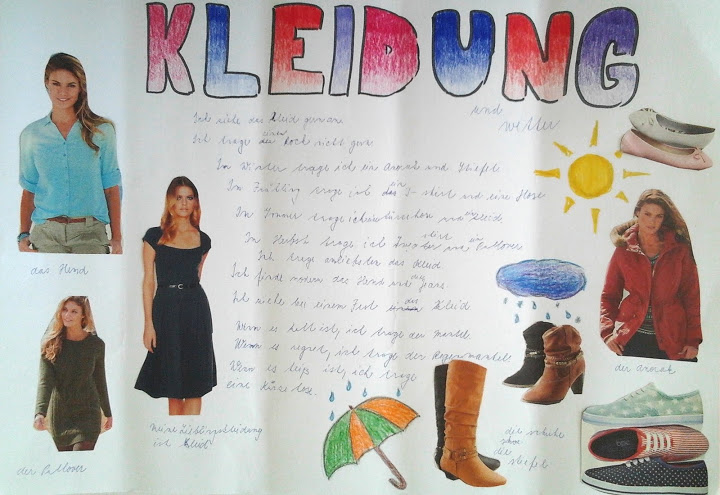 KLEIDUNG
und
wetter
Ich ziehe das Kleid gern an
Ich trage einen Rock nicht gern
Im Winter trage ich ein Anorak und Stiefel
Im Frühling trage ich das ein T-shirt und eine Hose
Im Sommer trage ich und Kleid
Im Herbst trage ich und ein Pullover
Ich trage am liebsten das Kleid
Ich finde modern das Hemd und die Jeans
Ich ziehe bei einem Fest das Kleid
Wenn es kalt ist, ich trage den mantel.
Wenn es regnet, ich trage der Regenmantel
Wenn es heiß ist, ich trage
eine Kurze hose.
das Hemd
der Pullover
meine Lieblingskleidung
ist Kleid
der anorak
die schuhe
die
stiefel